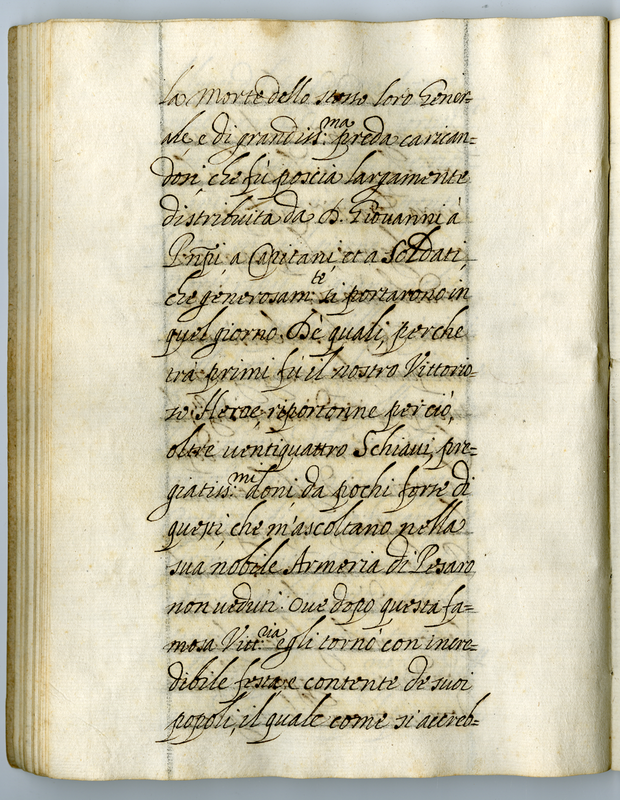 la Morte dello stesso loro Gener=
ale e di grandiss:ma preda carican=
dosi, che fù poscia largamente
distribuita da D. Giovanni à
Prñpi, a Capitani, et a Soldati
che generosam:te si portarono in
quel giorno. Dè quali, perche
trà primi fù il nostro Vittorio=
so Heroe, riportonne perciò,
oltre ventiquattro Schiaui, pre=
giatiss:mi doni da pochi forse di
questi, che m'ascoltano nella
sua nobile Armeria di Pesaro
non ueduti. Oue dopo questa fa=
mosa Vitt:ria egli tornò con incre=
dibile festa, e contente de suoi
popoli, il quale come si accreb=